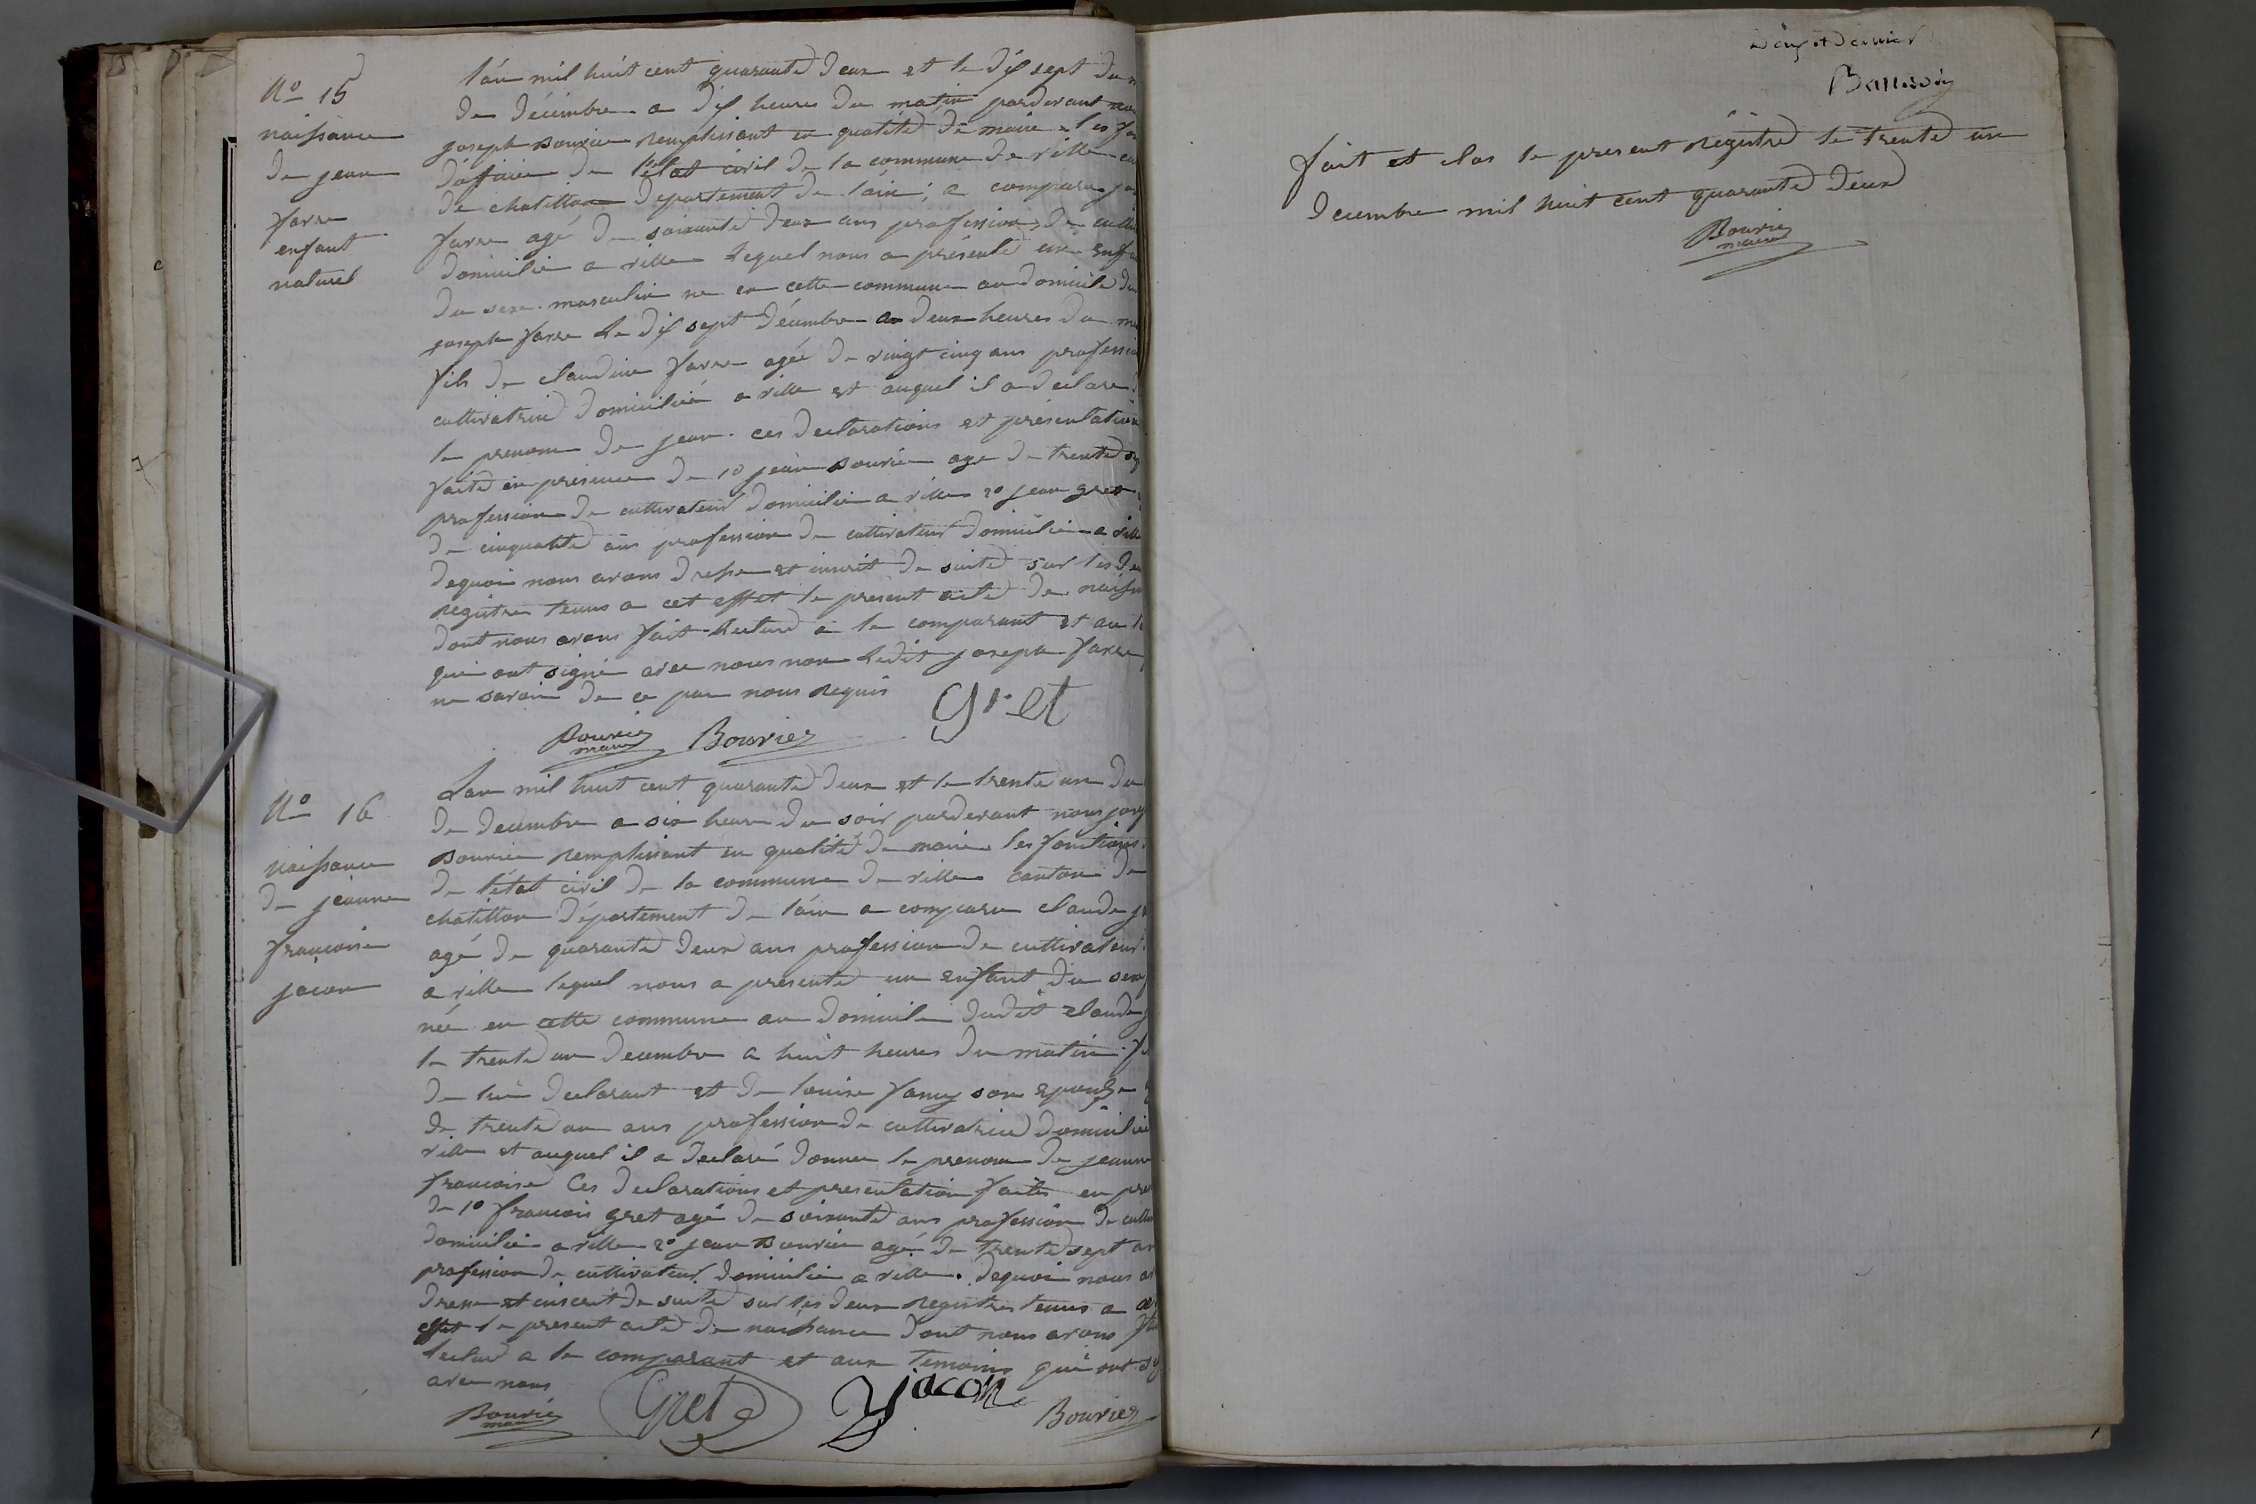 No 15
naissance
de jean
farre
enfant
naturel
l'an mil huit cent quarante deux et le dix sept du
de décembre a dix heures du matin pardevant nous
joseph Bourie remplissant en qualité de maire les
de l'état civil de la commune de ville
de chatillon département de l'ain; a comparu
farre agé de soixante deux ans profession de
domicilié a ville lequel nous a présenté un
du sexe masculin né en cette commune au domicile du
joseph farre le dix sept décembre a deux heures du
fils de claudine farre agée de vingt cinq ans profession
cultivatrice domiciliée a ville et auquel il a declaré
le prenom de jean. ces declarations et présentation
faite en présence de 1o jean Bourie age de trente
profession de cultivateur domicilié a ville 2o jean gret
de cinquante ans profession de cultivateur domicilié a ville
dequoi nous avons dressé et inscrit de suite sur les
registres tenus a cet effet le présent acte de
dont nous avons fait lecture a le comparant et au
qui ont signé avec nous non ledit joseph farre
ne savoir de ce par nous requis
gret
Bourie
maire
Bourier
No 16
naissance
de jeanne
francoise
jacon
L'an mil huit cent quarante deux et le trente un du
de decembre a six heure du soir pardevant nous
Bourie remplissant en qualité de maire les fonctions
de l'état civil de la commune de ville canton de
chatillon département de l'ain a comparu claude
agé de quarante deux ans profession de cultivateur
a ville lequel nous a présenté un enfant du sexe
née en cette commune au domicile dudit claude
le trente un decembre a huit heures du matin
de lui declarant et de louise famy son epouse
de trente un ans profession de cultivatrice domiciliée
ville et auquel il a declaré donner le prenom de jeanne
francoise Ces declarations et presentation faites en
de 1o francois gret agé de soixante ans profession de
domicilié a ville 2o jean Bourie agé de trente sept
profession de cultivateur domicilié a ville. dequoi nous
dresse et inscrit de suite sur les deux registres tenus a
effet le present acte de naissance dont nous avons
lecture a le comparant et aux temoins qui ont
avec nous
Bourie
maire
Gret
Jacon
Bourier
et dernier
fait et clos le present régistre le trente un
decembre mil huit cent quarante deux
Bourie
maire